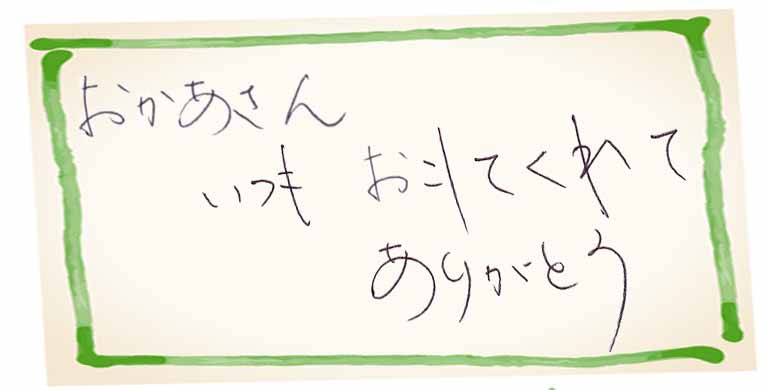 おかあさん
いつも おこしてくれて
ありがとう